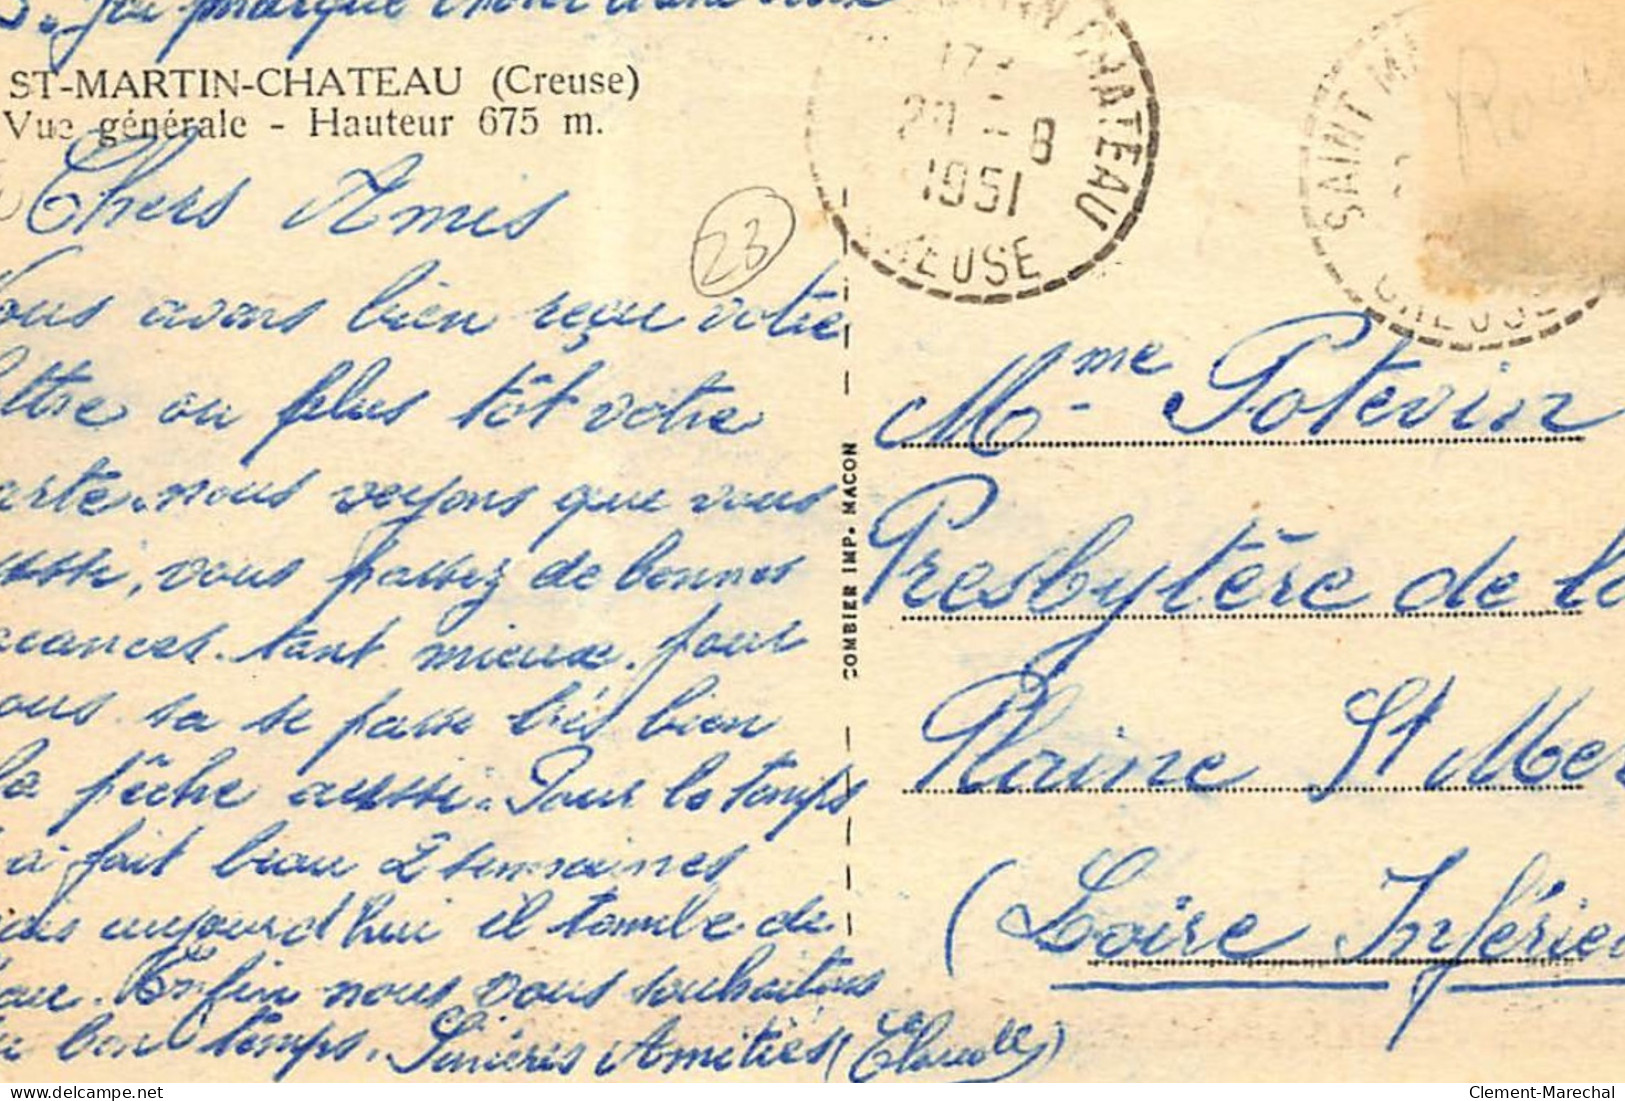 J'ai marqué
ST-MARTIN-CHATEAU (Creuse)
Vue générale - Hauteur 675 m.
Chers Amis
Nous avons bien reçu votre
lettre ou plus tôt votre
carte. nous voyons que vous
aussi, vous passez de bonnes
vacances. tant mieux. pour
nous sa se passe très bien
la pêche aussi. Pour le temps
a fait beau 2 semaines
mais aujourd'hui il tombe de
l'eau. Enfin nous vous souhaitons
du bon temps. Sincères Amitiés (Claude)
23
CHATEAU
17
20 - 8
1951
CREUSE
SAINT M
CREUSE
COMBIER IMP. MACON
Mme Potevin
Presbytère de la
Plaine St Me
(Loire Inférieu
Clement-Marechal